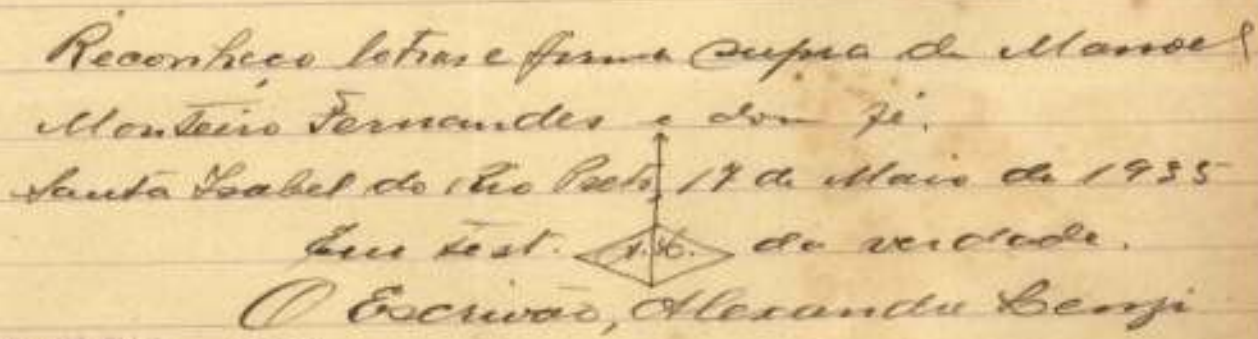 Reconheço letras e firma supra de Manoel
Monteiro Fernandes e dou fé.
Santa Isabel do Rio Preto, 17 de Maio de 1935
Em test. da verdade.
O Escrivão, Alexandre